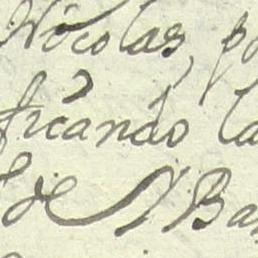 Nicolas, po
ficando la
de S Bar